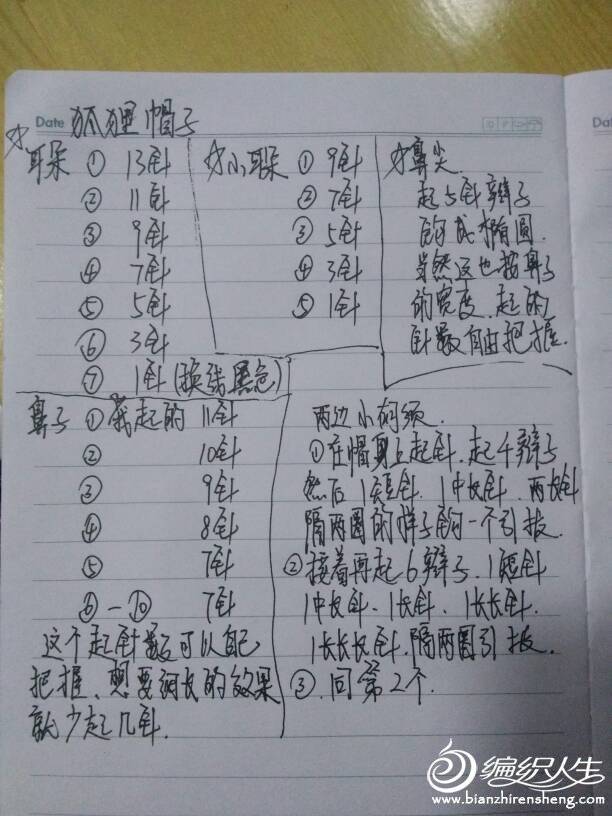 Date 狐狸帽子
☆耳朵 ① 13针
② 11针
③ 9针
④ 7针
⑤ 5针
⑥ 3针
⑦ 1针(换线黑色)
☆小耳朵 ① 9针
② 7针
③ 5针
④ 3针
⑤ 1针
☆鼻尖
起5针辫子
钩成椭圆.
当然这也按鼻子
的宽度.起的
针数自由把握.
鼻子 ① 我起的 11针
② 10针
③ 9针
④ 8针
⑤ 7针
⑥—⑩ 7针
这个起针数可以自己
把握、想要细长的效果
就少起几针.
两边小胡须.
①在帽身上起针.起4辫子
然后1短针.1中长针.两长针
隔两圈的样子钩一个引拔.
②接着再起6辫子.1短针
1中长针、1长针、1长长针.
1长长长针.隔两圈引拔.
③.同第2个.
编织人生
www.bianzhirensheng.com